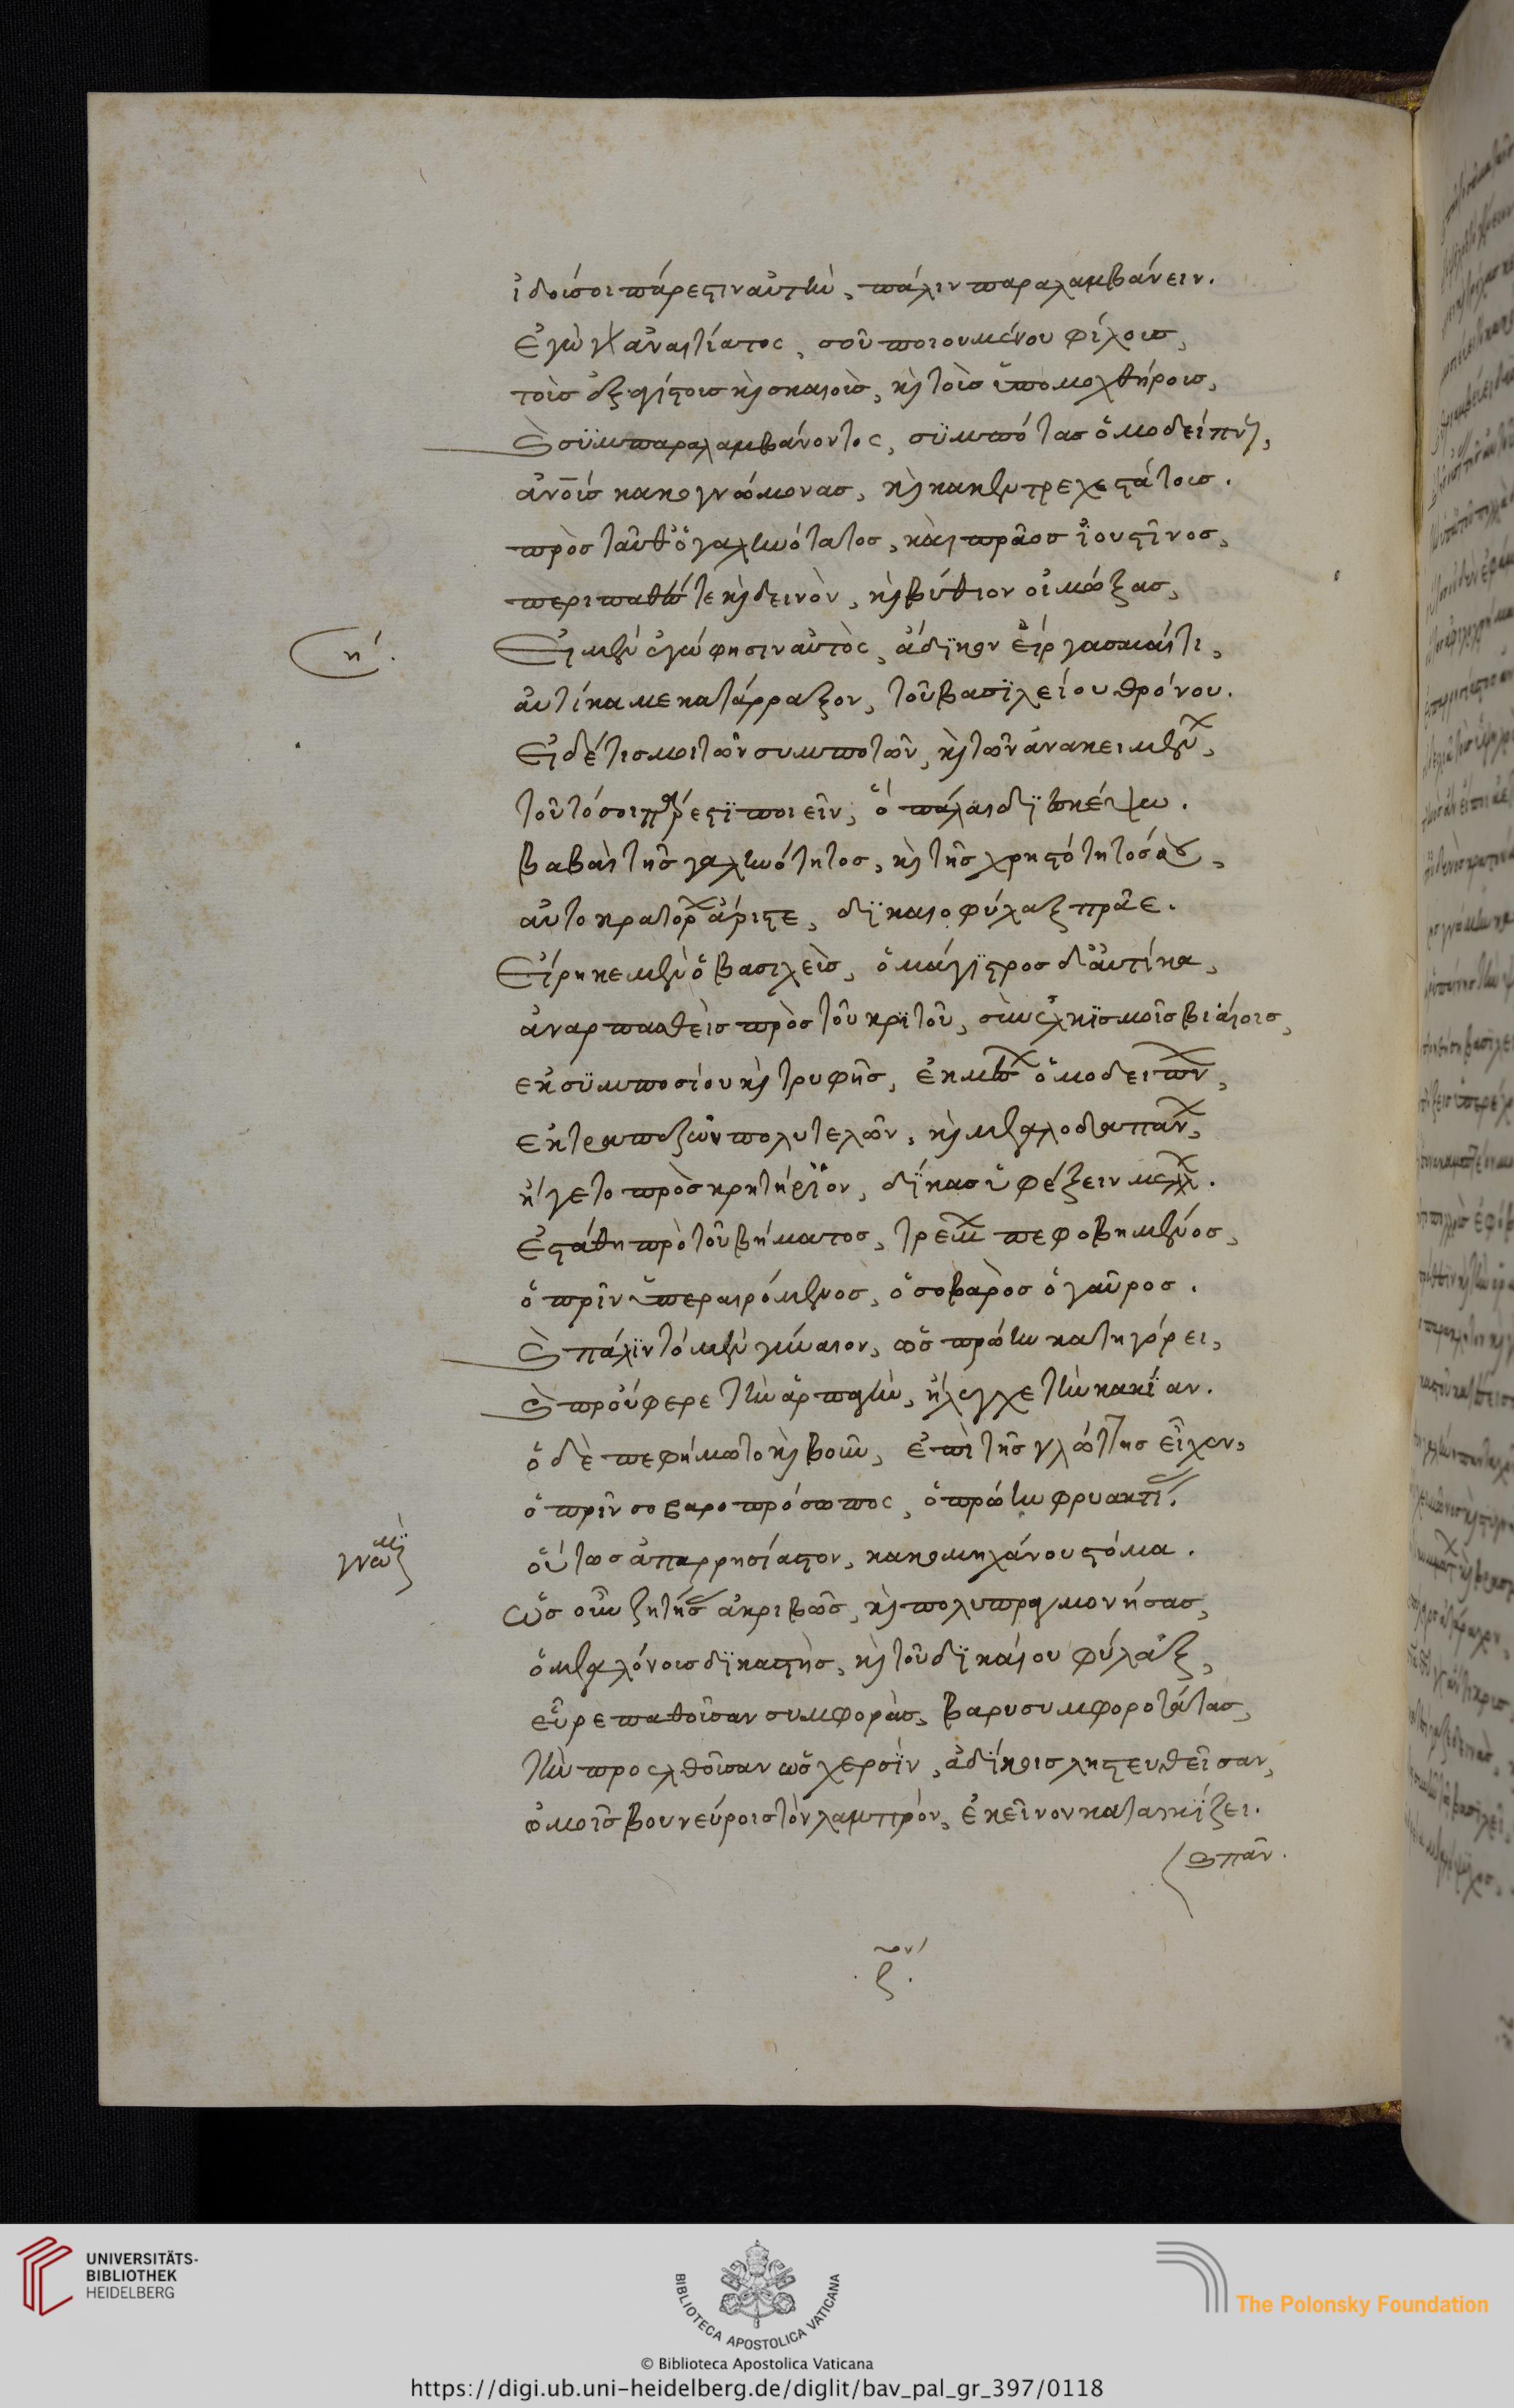 ἰδού σοι πάρεστιν αὐτὴν, πάλιν παραλαμβάνειν.
Ἐγὼ γὰρ ἀναιτίατος, σοῦ ποιουμένου φίλους,
τοὺς ὀξυγήρους καὶ σκαιοὺς, καὶ τοὺς ὑπομοχθήρους,
καὶ συμπαραλαμβάνοντος, συμπότας ὁμοδείπνους,
ἀνους κακογνώμονας, καὶ κακεντρεχεστάτους.
πρὸς ταῦθ' ὁ γαληνότατος, καὶ πρᾶος Ἰουστῖνος,
περιπαθές τε καὶ δεινὸν, καὶ βύθιον οἰμώξας,
η΄.
Εἰ μὲν ἐγώ φησιν αὐτὸς, ἄδικον εἴργασμαί τι,
αὐτίκα με κατάρραξον, τοῦ βασιλείου θρόνου.
Εἰ δέ τις μοι τῶν συμποτῶν, καὶ τῶν ἀνακειμένων,
τοῦτό σοι πάρεστι ποιεῖν, ὃ πάλαι διεσκέψω.
βαβαὶ τῆς γαληνότητος, καὶ τῆς χρηστότητός σου,
αὐτοκράτορ ἄριστε, δικαιοφύλαξ πρᾶε.
Εἴρηκε μὲν ὁ βασιλεὺς, ὁ μάγιστρος δ' αὐτίκα,
ἀναρπασθεὶς πρὸς τοῦ κριτοῦ, σὺν ἑλκυσμοῖς βιαίοις,
ἐκ συμποσίου καὶ τρυφῆς, ἐκ μέσων ὁμοδείπνων,
ἐκ τραπεζῶν πολυτελῶν, καὶ μεγαλοδαπάνων,
ἤγετο πρὸς κριτήριον, δίκας ὑφέξειν μέλλων.
Ἐστάθη πρὸ τοῦ βήματος, τρέμων πεφοβημένος,
ὁ πρὶν ὑπεραιρόμενος, ὁ σοβαρὸς ὁ γαῦρος.
καὶ πάλιν τὸ μὲν γύναιον, ὡς πρώην κατηγόρει,
καὶ προὔφερε τὴν ἁρπαγὴν, ἤλεγχε τὴν κακίαν.
ὁ δὲ πεφίμωτο καὶ βοῦν, ἐπὶ τῆς γλώττης εἶχεν,
ὁ πρὶν σοβαροπρόσωπος, ὁ πρώην φρυακτίας.
γνωμικ
οὕτως ἀπαρρησίαστον, κακομηχάνου στόμα.
Ὡς οὖν ζητήσας ἀκριβῶς, καὶ πολυπραγμονήσας,
ὁ μεγαλόνους δικαστὴς, καὶ τοῦ δικαίου φύλαξ,
εὗρε παθοῦσαν συμφορὰς, βαρυσυμφοροτάτας,
τὴν προσελθοῦσαν ὡς χερσὶν, ἀδίκοις λῃστευθεῖσαν,
ὠμοῖς βουνεύροις τὸν λαμπρὸν, ἐκεῖνον καταικίζει.
καὶ πᾶν.
ξον.
UNIVERSITÄTS-
BIBLIOTHEK
HEIDELBERG
BIBLIOTECA APOSTOLICA VATICANA
The Polonsky Foundation
© Biblioteca Apostolica Vaticana
https://digi.ub.uni-heidelberg.de/diglit/bav_pal_gr_397/0118